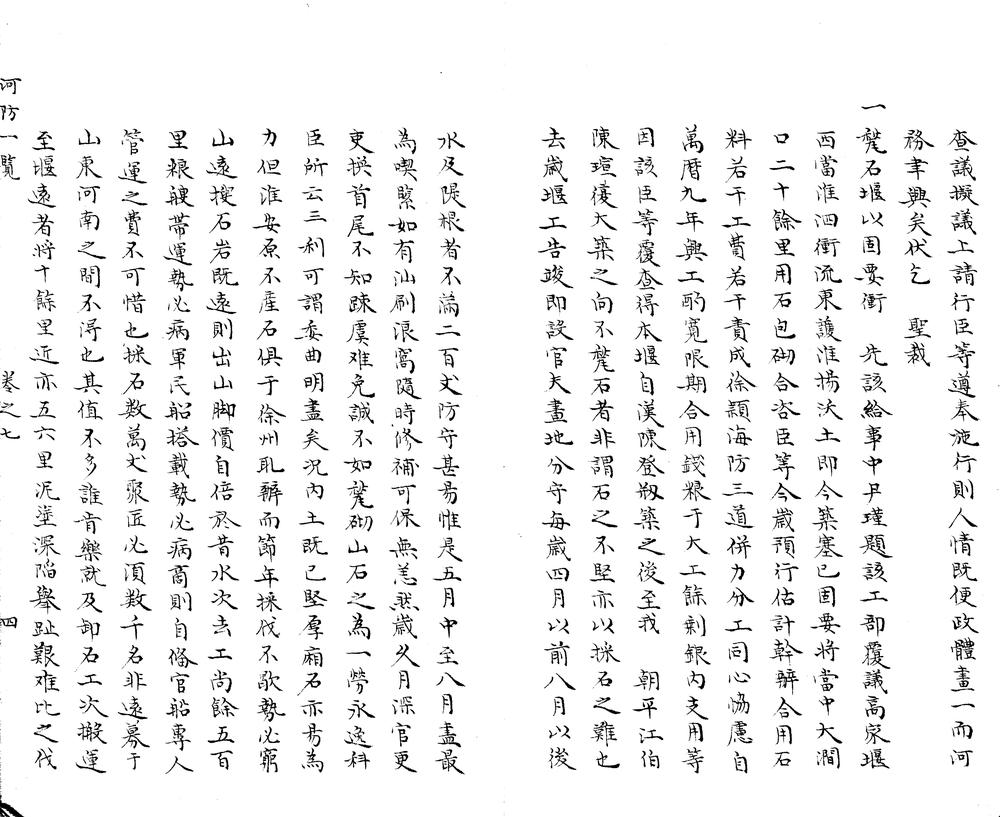 查議擬議上請行臣等遵奉施行則人情既便政體畫一而河
務聿興矣伏乞　聖裁
一甃石堰以固要衝　先該給事中尹瑾題該工部覆議高家堰
西當淮泗衝流東護淮揚沃土即今築塞已固要將當中大澗
口二十餘里用石包砌合咨臣等今歲預行估計幹辦合用石
料若干工費若干責成徐潁海防三道併力分工同心恊慮自
萬曆九年興工酌寬限期合用錢粮于大工餘剩銀內支用等
因該臣等覆查得本堰自漢陳登剏築之後至我　朝平江伯
陳瑄復大築之向不甃石者非謂石之不堅亦以採石之難也
去歲堰工告竣即設官夫畫地分守每歲四月以前八月以後
水及隄根者不滿二百丈防守甚易惟是五月中至八月盡最
為喫緊如有汕刷浪窩隨時修補可保無恙然歲久月深官更
吏換首尾不知踈虞难免誠不如甃砌山石之為一勞永逸科
臣所云三利可謂委曲明盡矣况內土既已堅厚廂石亦易為
力但淮安原不產石俱于徐州取辦而節年採伐不歇勢必窮
山遠搜石岩既遠則出山脚價自倍於昔水次去工尚餘五百
里粮艘帶運勢必病軍民船搭載勢必病商則自俻官船專人
管運之費不可惜也採石數萬丈聚匠必須數千名非遠募于
山東河南之間不淂也其值不多誰肯樂就及卸石工次搬運
至堰遠者將十餘里近亦五六里泥塗深陷舉趾艱难比之伐
河防一覽　卷之七　四